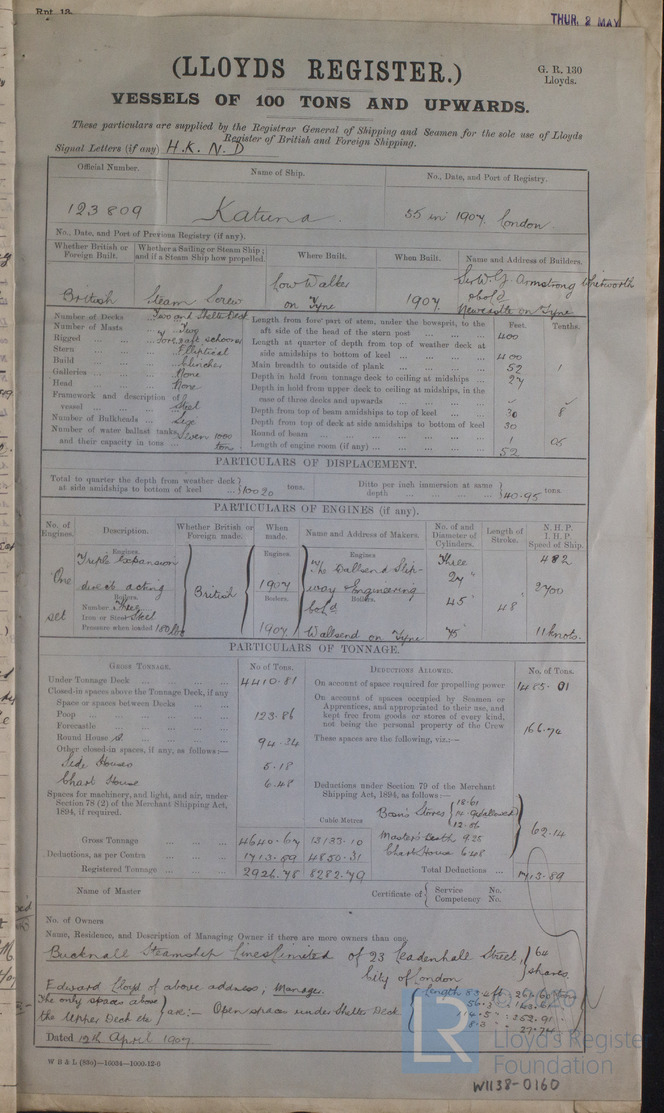 Rpt. 13.
THUR. 2 MAY
(LLOYDS REGISTER.)
G. R. 130
Lloyds.
VESSELS OF 100 TONS AND UPWARDS.
These particulars are supplied by the Registrar General of Shipping and Seamen for the sole use of Lloyds
Register of British and Foreign Shipping.
Signal Letters (if any) H. K. N. D
Official Number. Name of Ship. No., Date, and Port of Registry.
123809 Katuna. 55 in 1907. London
No., Date, and Port of Previous Registry (if any).
Whether British or Foreign Built. Whether a Sailing or Steam Ship; and if a Steam Ship how propelled. Where Built. When Built. Name and Address of Builders.
British Steam Screw Low Walker on Tyne 1907. Sir W. G. Armstrong Whitworth & Co Ld Newcastle on Tyne
Number of Decks Two and Shelter Deck
Number of Masts Two
Rigged Fore & aft schooner
Stern Elliptical
Build Clincher
Galleries None
Head None
Framework and description of vessel Steel
Number of Bulkheads Six
Number of water ballast tanks, and their capacity in tons Seven 1000 tons
Feet. Tenths.
Length from fore part of stem, under the bowsprit, to the aft side of the head of the stern post 400
Length at quarter of depth from top of weather deck at side amidships to bottom of keel 400
Main breadth to outside of plank 52 1
Depth in hold from tonnage deck to ceiling at midships 27
Depth in hold from upper deck to ceiling at midships, in the case of three decks and upwards
Depth from top of beam amidships to top of keel 30 8
Depth from top of deck at side amidships to bottom of keel 30
Round of beam 1 05
Length of engine room (if any) 52
PARTICULARS OF DISPLACEMENT.
Total to quarter the depth from weather deck at side amidships to bottom of keel 10020 tons.
Ditto per inch immersion at same depth 40.95 tons.
PARTICULARS OF ENGINES (if any).
No. of Engines. Description. Whether British or Foreign made. When made. Name and Address of Makers. No. of and Diameter of Cylinders. Length of Stroke. N. H. P. I. H. P. Speed of Ship.
One set
Engines. Triple Expansion direct acting
Boilers. Number Three
Iron or Steel Steel
Pressure when loaded 180 lbs
British
Engines. 1907
Boilers. 1907.
Engines The Wallsend Slipway & Engineering Co Ld
Boilers. Wallsend on Tyne
Three 27" 45" 75"
48"
482
2700
11 knots.
PARTICULARS OF TONNAGE.
GROSS TONNAGE. No of Tons.
Under Tonnage Deck 4410.81
Closed-in spaces above the Tonnage Deck, if any
Space or spaces between Decks
Poop 123.86
Forecastle
Round House 94.34
Other closed-in spaces, if any, as follows:—
Side Houses 5.18
Chart House 6.48
Spaces for machinery, and light, and air, under Section 78 (2) of the Merchant Shipping Act, 1894, if required.
Cubic Metres
Gross Tonnage 4640.67 13133.10
Deductions, as per Contra 1713.89 4850.31
Registered Tonnage 2926.78 8282.79
DEDUCTIONS ALLOWED. No. of Tons.
On account of space required for propelling power 1485.01
On account of spaces occupied by Seamen or Apprentices, and appropriated to their use, and kept free from goods or stores of every kind, not being the personal property of the Crew 166.74
These spaces are the following, viz.:—
Deductions under Section 79 of the Merchant Shipping Act, 1894, as follows:—
Bosn's Stores
Master's Berth 9.25
Chart House 6.48
62.14
Total Deductions 1713.89
Name of Master
Certificate of Service No. Competency No.
No. of Owners
Name, Residence, and Description of Managing Owner if there are more owners than one.
Bucknall Steamship Lines Limited of 23 Leadenhall Street, City of London 64 shares
Edward Lloyd of above address, Manager.
The only spaces above the Upper Deck etc are:— Open spaces under Shelter Deck
Dated 12th April 1907.
W B & L (63o)—16034—1000-12-6
© 2020
LR
Lloyd's Register
Foundation
W1138-0160